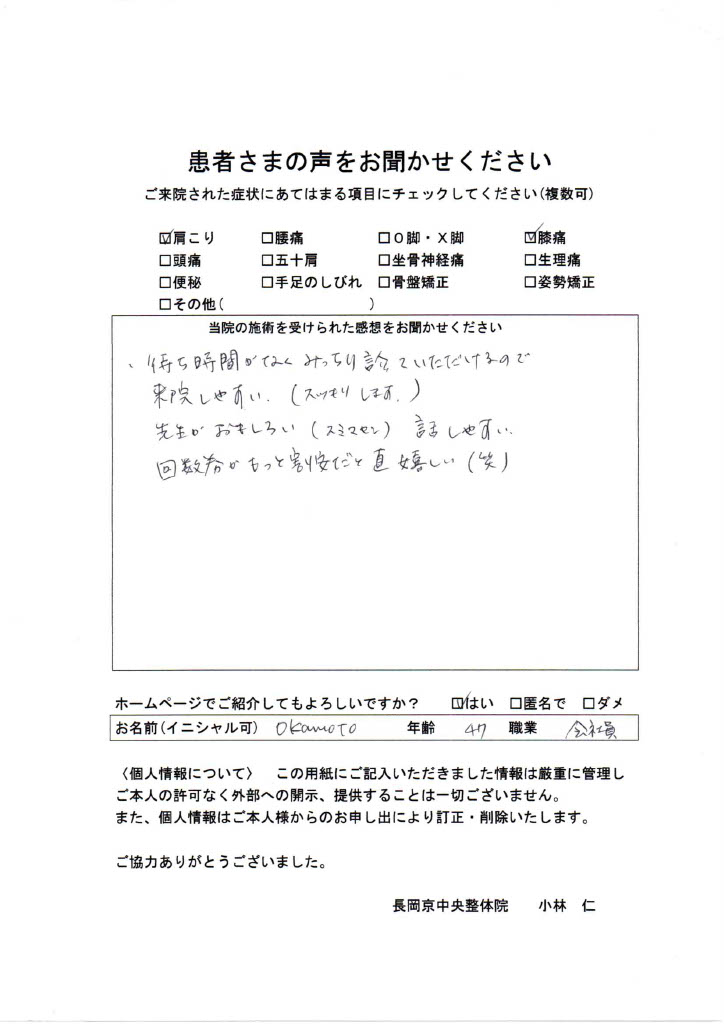 患者さまの声をお聞かせください
ご来院された症状にあてはまる項目にチェックしてください(複数可)
☑肩こり □腰痛 □O脚・X脚 ☑膝痛
□頭痛 □五十肩 □坐骨神経痛 □生理痛
□便秘 □手足のしびれ □骨盤矯正 □姿勢矯正
□その他( )
当院の施術を受けられた感想をお聞かせください
、待ち時間がなくみっちり診ていただけるので
来院しやすい.(スッキリします.)
先生がおもしろい(スミマセン) 話しやすい.
回数券がもっと割安だと直嬉しい(笑)
ホームページでご紹介してもよろしいですか? ☑はい □匿名で □ダメ
お名前(イニシャル可) Okamoto 年齢 47 職業 会社員
〈個人情報について〉 この用紙にご記入いただきました情報は厳重に管理し
ご本人の許可なく外部への開示、提供することは一切ございません。
また、個人情報はご本人様からのお申し出により訂正・削除いたします。
ご協力ありがとうございました。
長岡京中央整体院 小林 仁